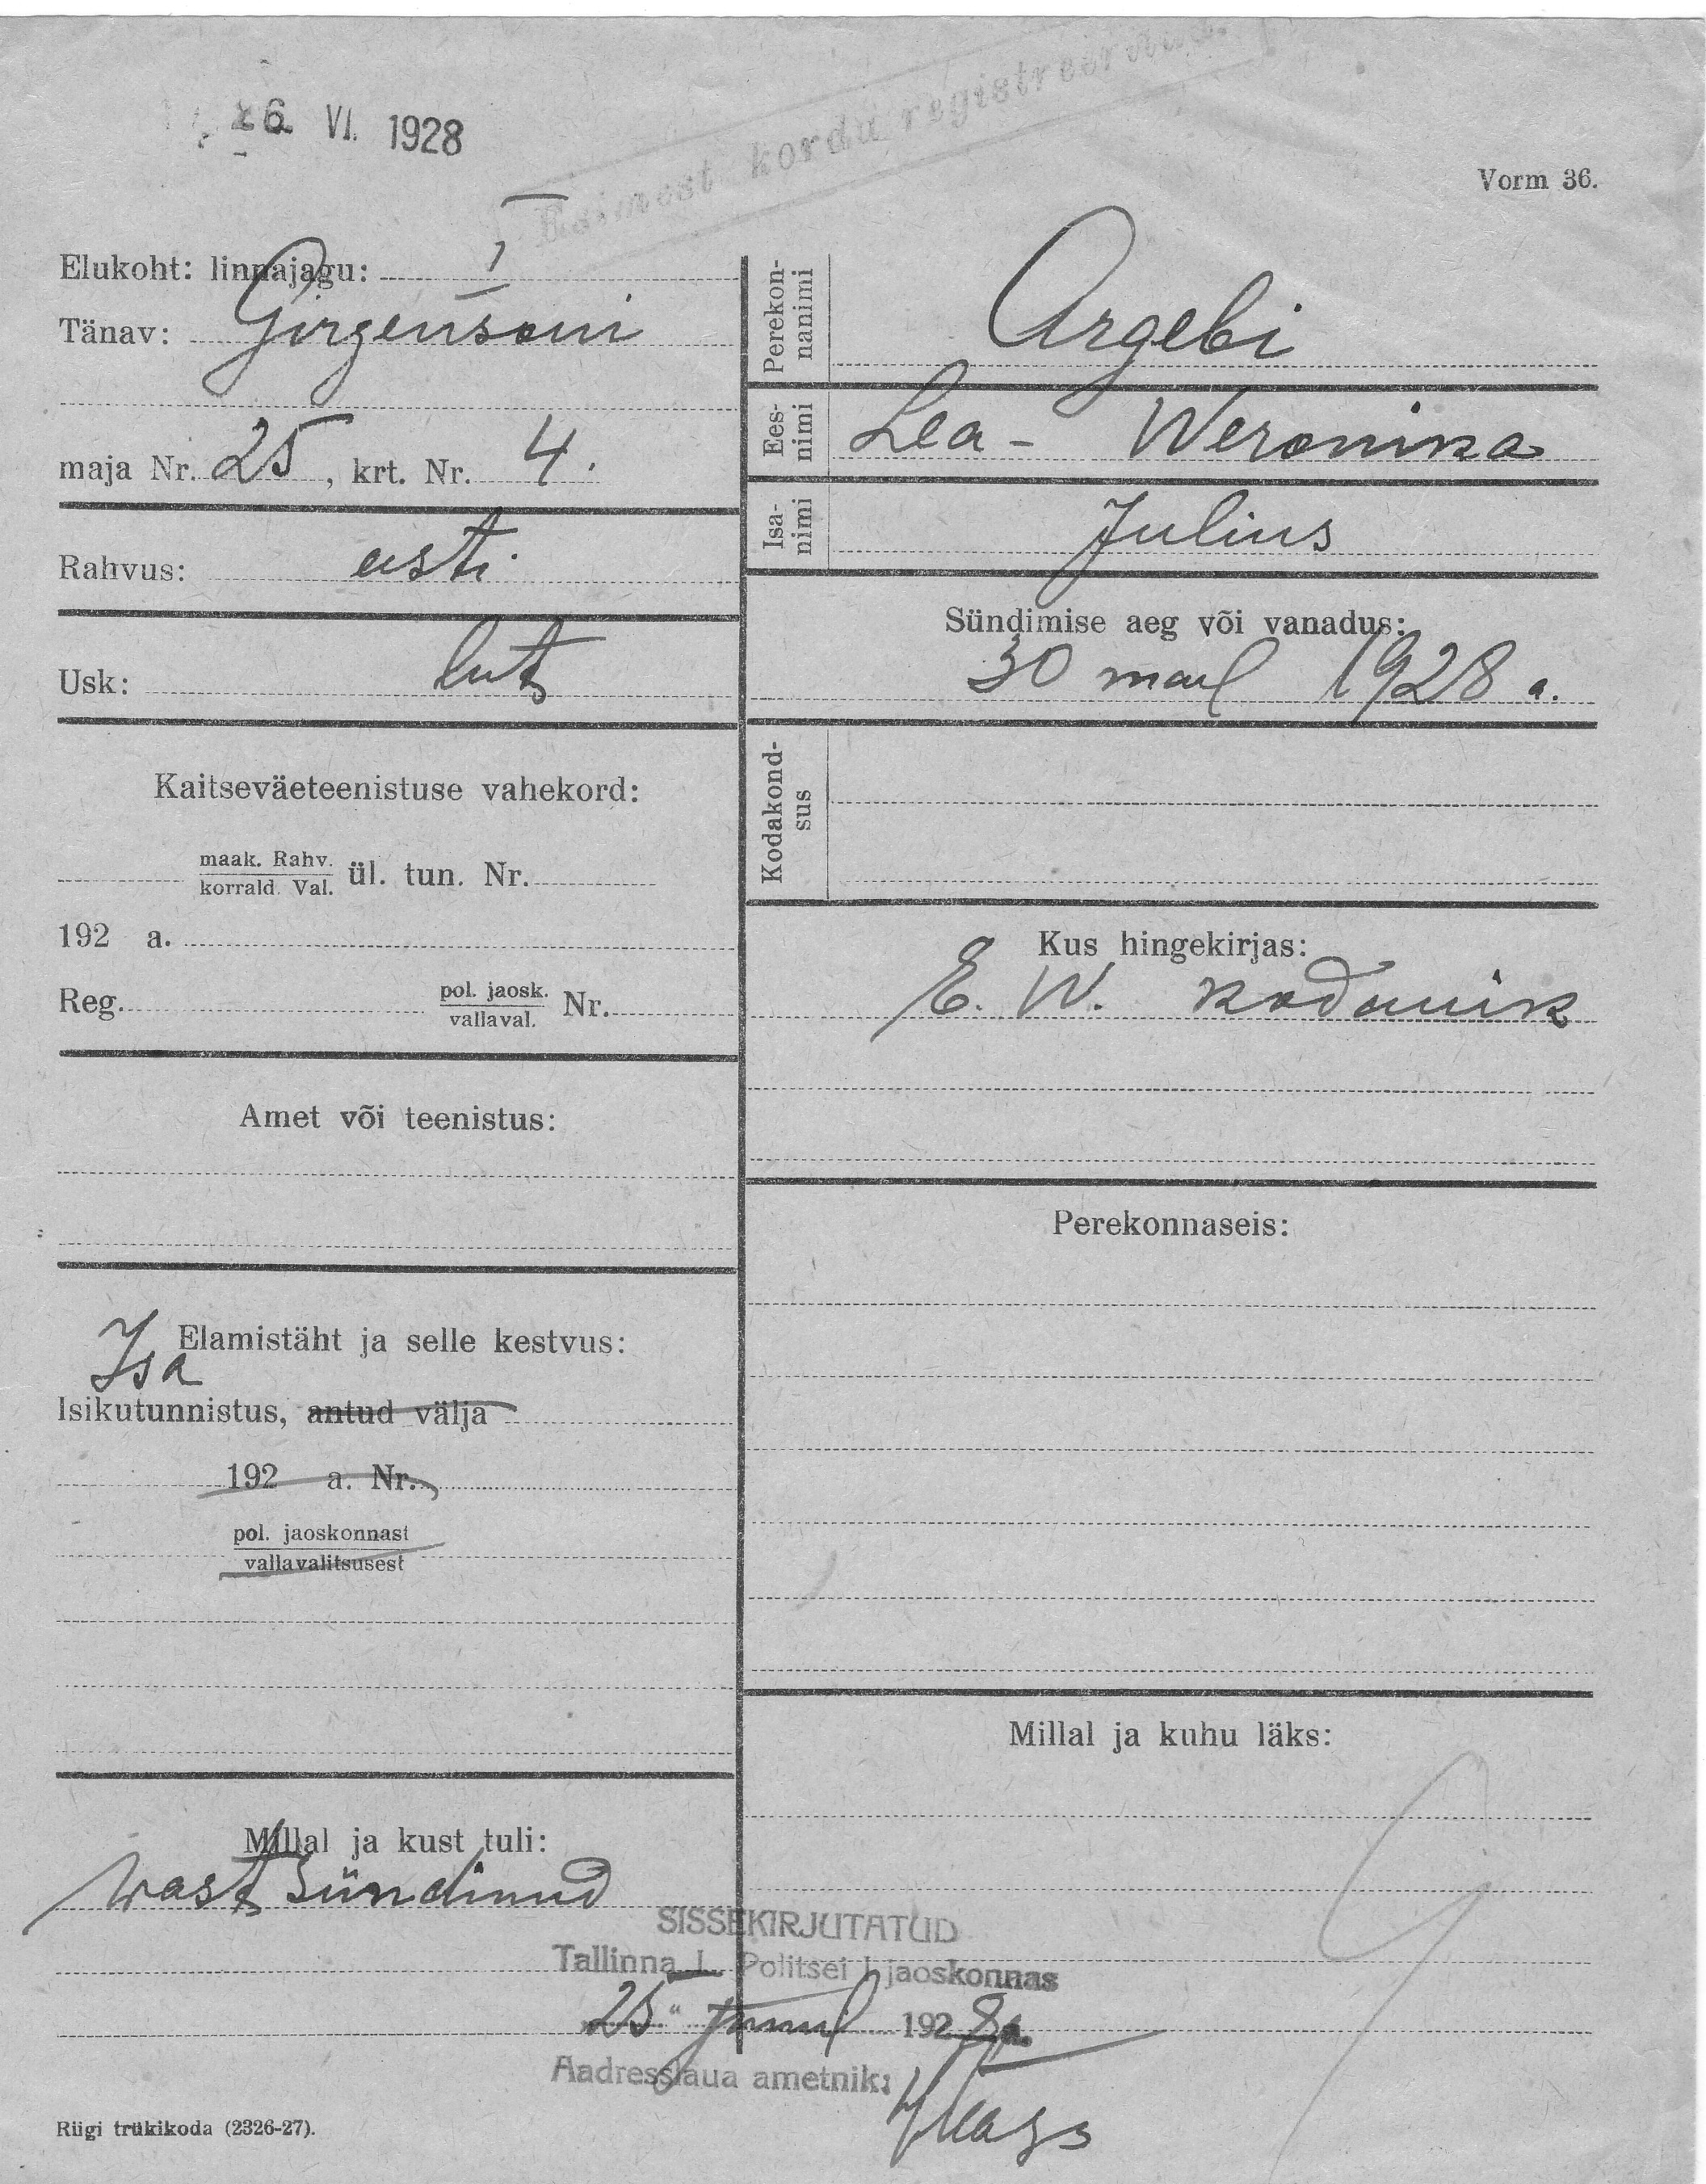 26. VI. 1928
Esimest korda registreeritud.
Vorm 36.
Elukoht: linnajagu: I
Tänav: Girgensoni
maja Nr. 25, krt. Nr. 4.
Rahvus: eesti
Usk: lut
Kaitseväeteenistuse vahekord:
maak. Rahv.
korrald. Val. ül. tun. Nr.
192 a.
Reg. pol. jaosk. Nr.
vallaval.
Amet või teenistus:
Elamistäht ja selle kestvus:
Isa
Isikutunnistus, antud välja
192 a. Nr.
pol. jaoskonnast
vallavalitsusest
Millal ja kust tuli:
wast sündinud
Perekon-
nanimi
Argebi
Ees-
nimi
Lea- Weronika
Isa-
nimi
Julius
Sündimise aeg või vanadus:
30 mail 1928 a.
Kodakond-
sus
Kus hingekirjas:
E. W. kodanik
Perekonnaseis:
Millal ja kuhu läks:
SISSEKIRJUTATUD
Tallinna L. Politsei I jaoskonnas
25 " juunil 1928 a.
Aadresslaua ametnik:
Riigi trükikoda (2326-27).